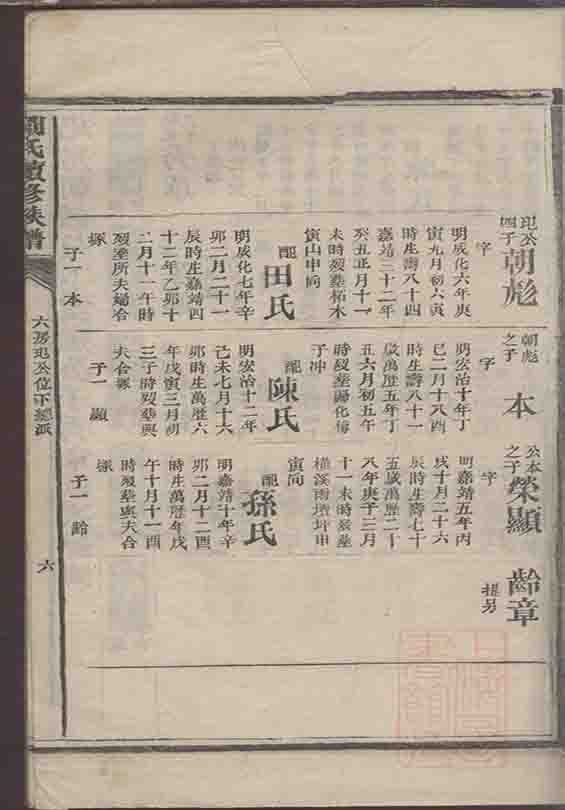 圯公四子
朝彪
字
明成化六年庚
寅九月初六寅
時生壽八十四
嘉靖三十二年
癸丑正月十一
未時歿葬柘木
寅山申向
配田氏
明成化七年辛
卯二月二十一
辰時生嘉靖四
十二年乙卯十
二月十一午時
歿葬所夫婦合
塚
子一 本
朝彪之子
本
字
明宏治十年丁
巳二月十八酉
時生壽八十一
歲萬歷五年丁
丑六月初五午
時歿葬陽化
子冲
配陳氏
明宏治十二年
己未七月十六
卯時生萬歷六
年戊寅三月初
三子時歿葬與
夫合塚
子一 顯
公本之子
榮顯
字
明嘉靖五年丙
戌十月二十六
辰時生壽七十
五歲萬歷二十
八年庚子三月
十一未時歿葬
橫溪雨壇坪申
寅向
配孫氏
明嘉靖十年辛
卯二月十二酉
時生萬歷年戊
午十月十一酉
時歿葬與夫合
塚
子一 齡
齡章
提另
氏續修族譜
六房圯公位下總派
六